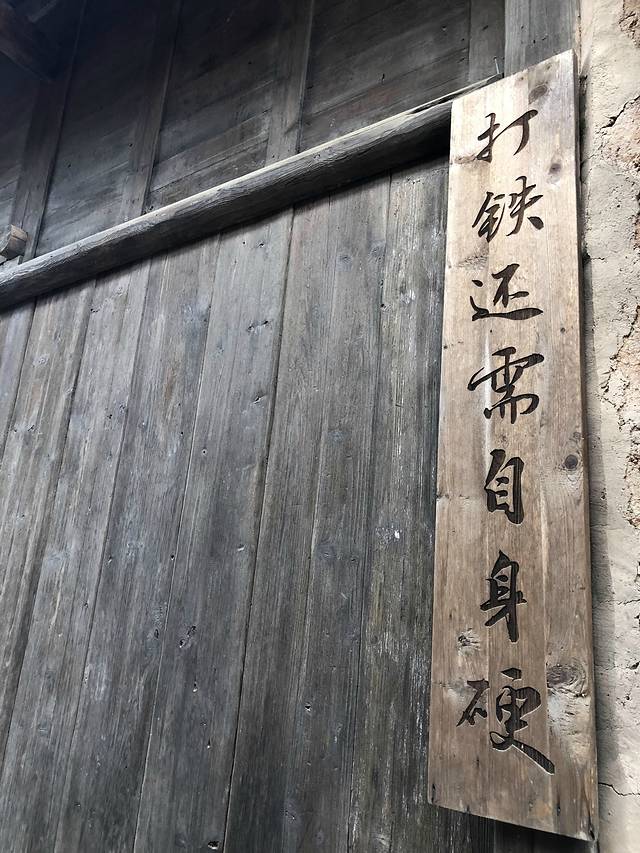 打铁还需自身硬